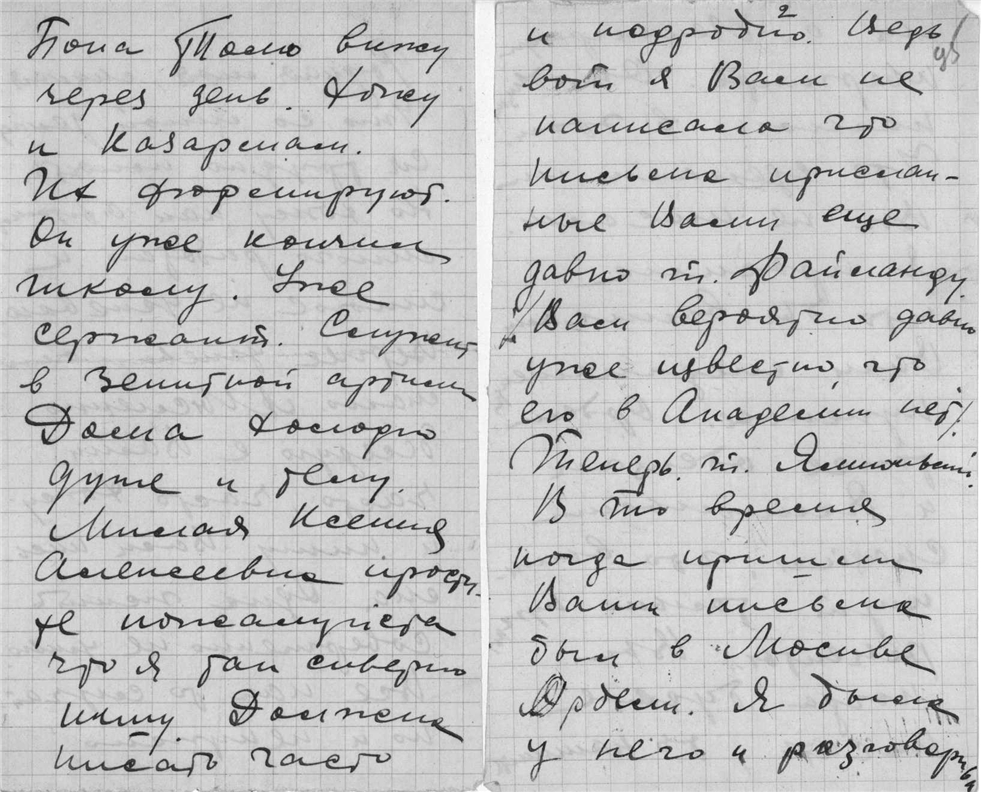 Пока Толю вижу
через день. Хожу
к казармам.
Их формируют.
Он уже кончил
школу. Уже
сержант. Служит
в зенитной артилл
Дома холодно
душе и телу.
Милая Ксения
Алексеевна прости-
те пожалуйста
что я так скверно
пишу. Должна
писать часто
и подробно. Ведь
вот я Вам не
написала что
письма прислан-
ные Вами еще
давно т. Файланду
/Вам вероятно давно
уже известно, что
его в Академии нет/.
Теперь т.
В то время
когда пришли
Ваши письма
был в Москве
Орбели. Я была
у него и разговари